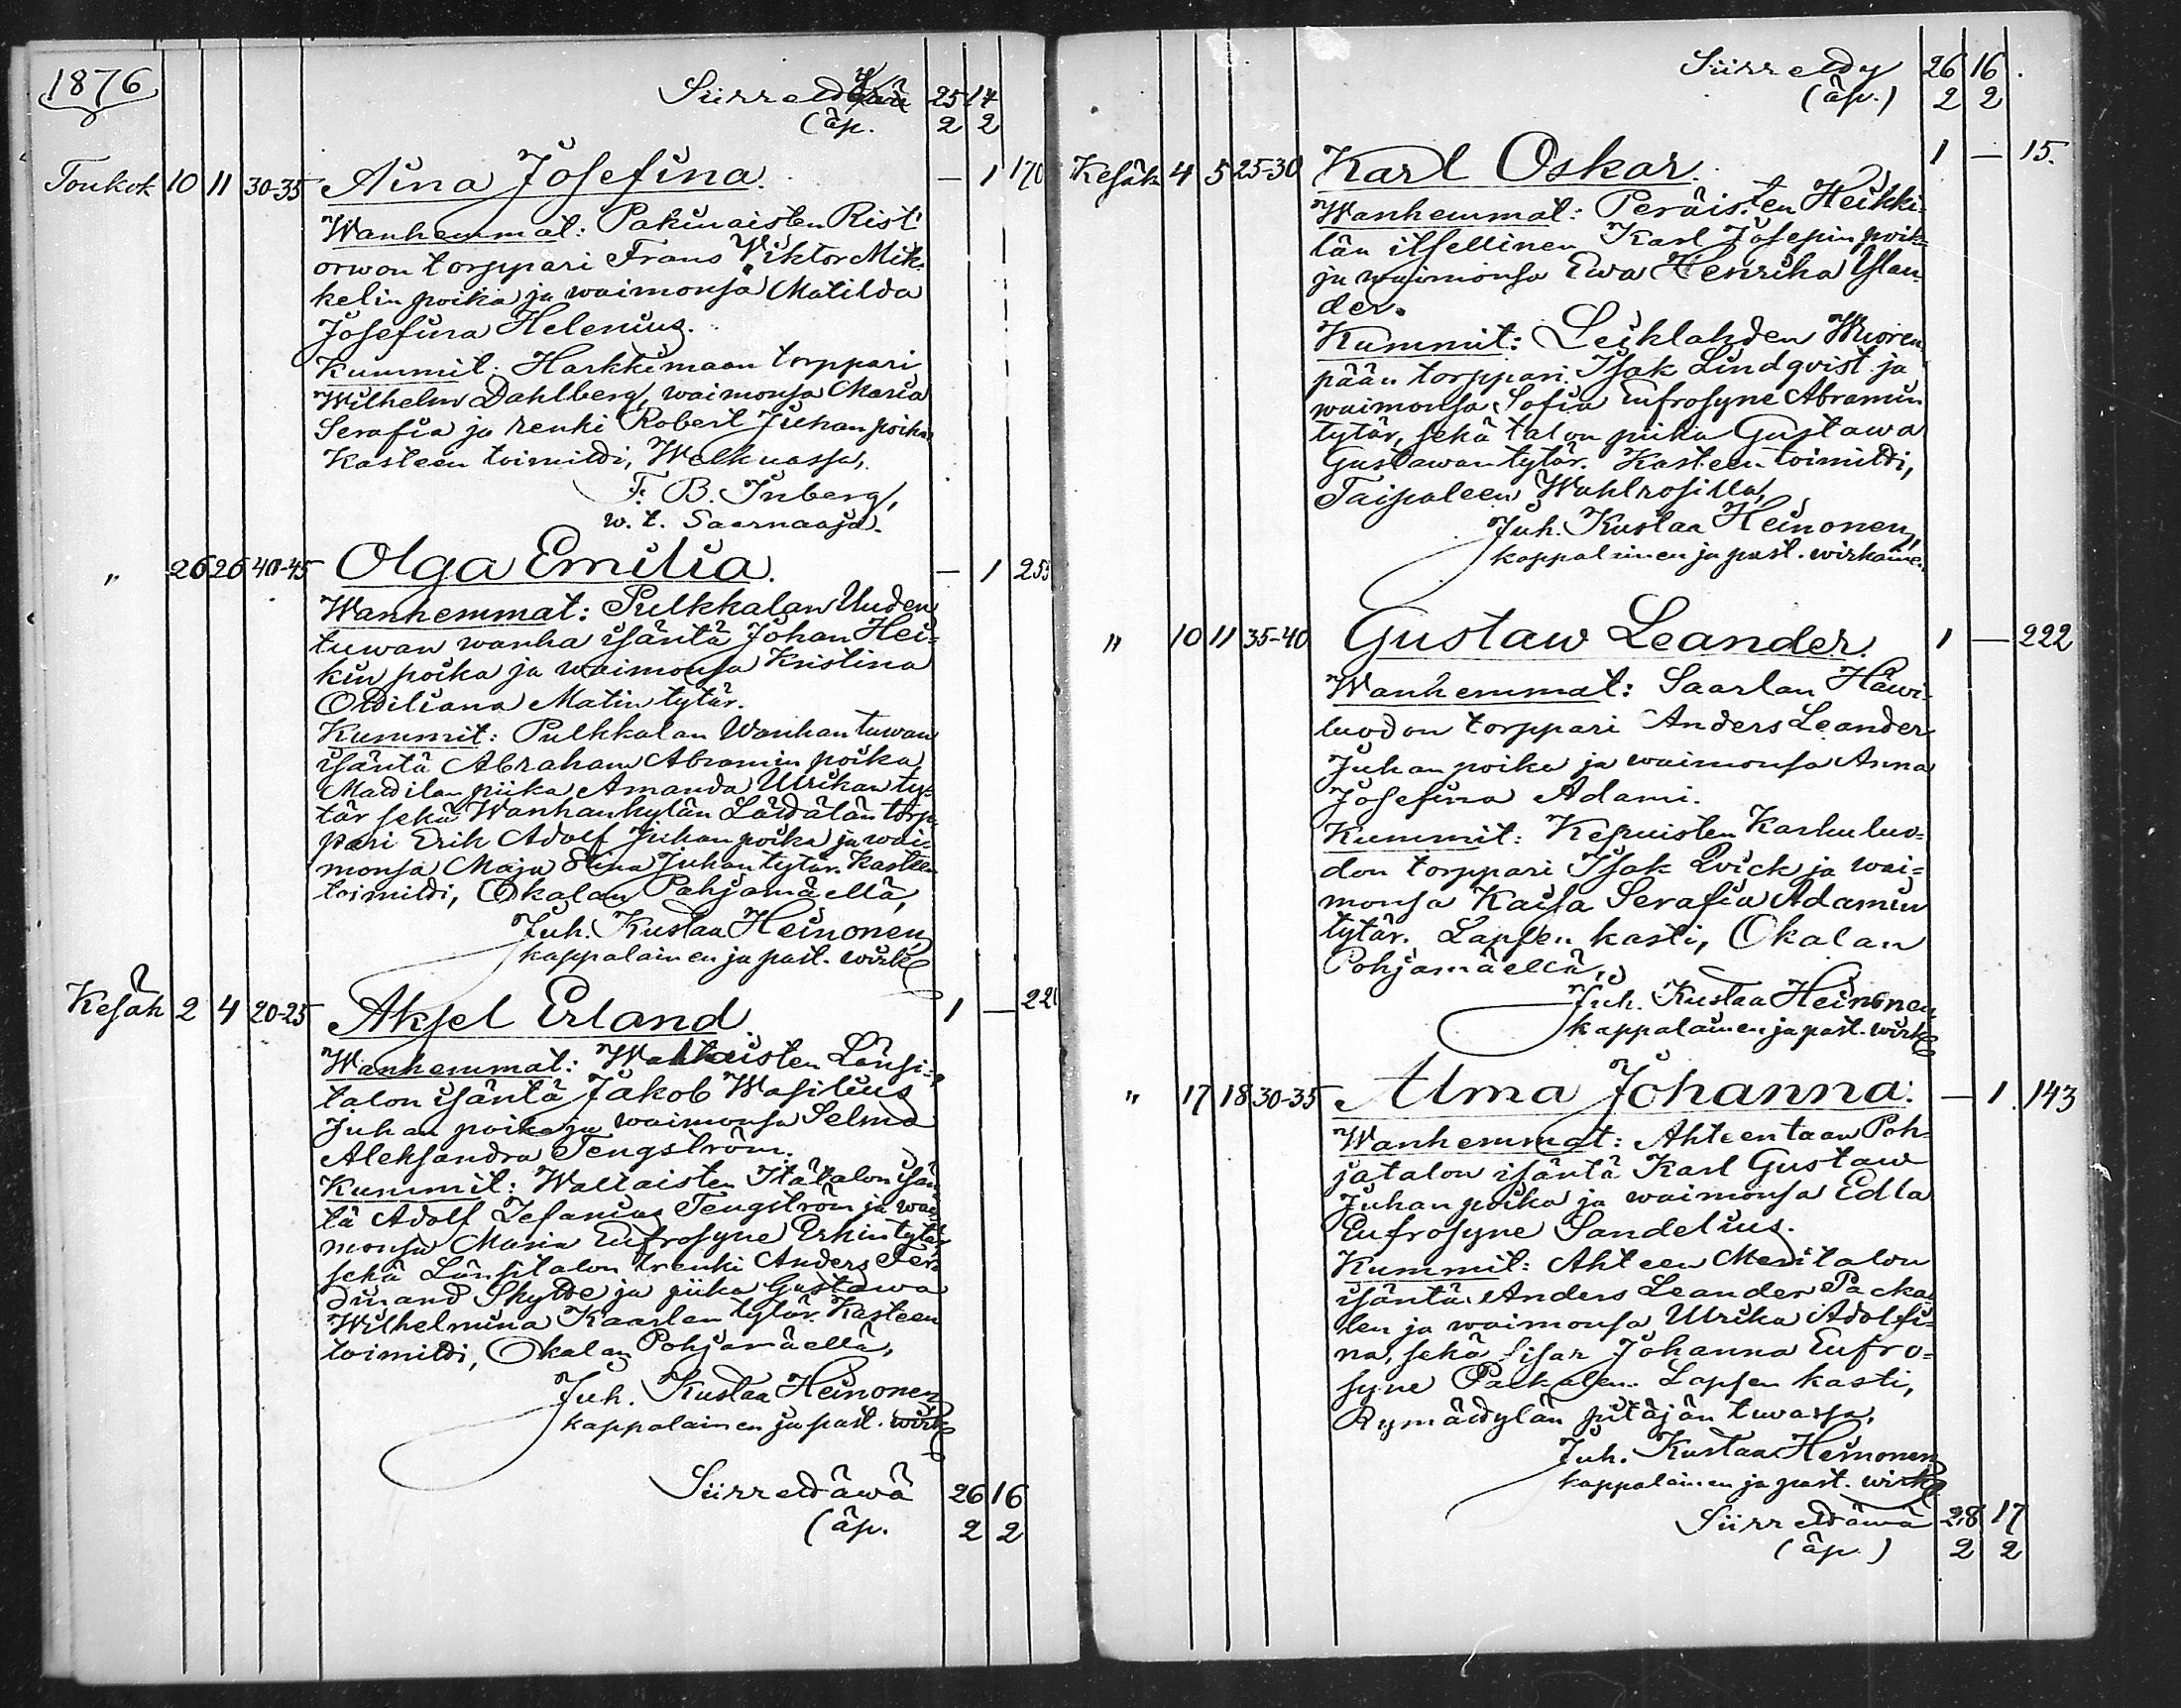 1876
Siirretty 25 14
(äp. 2 2
Toukok 10 11 30-35 Aina Josefina. — 1 170
Wanhemmat: Pakinaisten Rist'
orwon torppari Frans Viktor Mik-
kelin poika ja waimonsa Matilda
Josefina Helenius.
Kummit: Harkkimaan torppari
Wilhelm Dahlberg, waimonsa Maria
Serafia ja renki Robert Juhan poika
Kasteen toimitti, Welkuassa,
F. B. Inberg,
w. t. Saarnaaja.
" 26 26 40-45 Olga Emilia. — 1 255
Wanhemmat: Pulkkalan Uuden
tuwan wanha isäntä Johan Hei-
kin poika ja waimonsa Kristina
Ottiliana Matin tytär.
Kummit: Pulkkalan Wanhantuwan
isäntä Abraham Abramin poika,
Mattilan piika Amanda Ulrikan ty-
tär sekä Wanhankylän Lättälän torp-
pari Erik Adolf Juhan poika ja wai-
monsa Maja Stina Juhan tytär. Kasteen
toimitti, Okalan Pohjamäellä,
Juh. Kustaa Heinonen,
kappalainen ja past. wirk
Kesäk 2 4 20-25 Aksel Erland. 1 — 22
Wanhemmat: Wattaisten Länsi-
talon isäntä Jakob Wasilius
Juhan poika ja waimonsa Selma
Aleksandra Tengström.
Kummit: Wattaisten Itätalon isän-
tä Adolf Zefanias Tengström ja wai-
monsa Maria Eufrosyne Erkin tytär,
sekä Länsitalon renki Anders Fer-
dinand Skytte ja piika Gustawa
Wilhelmina Kaarlen tytär. Kasteen
toimitti, Okalan Pohjamäellä,
Juh. Kustaa Heinonen
kappalainen ja past. wirk
Siirrettäwä 26 16
(äp. 2 2
Siirretty 26 16.
(äp.) 2 2
Kesäk 4 5 25-30 Karl Oskar. 1 — 15.
Wanhemmat: Peräisten Heikki-
län itsellinen Karl Josepin poik
ja waimonsa Ewa Henrika Ylan-
der.
Kummit: Leiklahden Wuoren
pään torppari Isak Lindqvist ja
waimonsa Sofia Eufrosyne Abramin
tytär, sekä talon piika Gustawa
Gustawan tytär. Kasteen toimitti,
Taipaleen Wahlrosilla,
Juh. Kustaa Heinonen,
kappalainen ja past. wirkaine.
" 10 11 35-40 Gustaw Leander. 1 — 222
Wanhemmat: Saarlan Häwi-
luodon torppari Anders Leander
Juhan poika ja waimonsa Anna
Josefina Adami.
Kummit: Karkuluo-
don torppari Isak Qvick ja wai-
monsa Kaisa Serafia Adamin
tytär. Lapsen kasti, Okalan
Pohjamäellä,
Juh. Kustaa Heinonen,
kappalainen ja past. wirk
" 17 18 30-35 Alma Johanna. — 1. 143
Wanhemmat: Ahteentaan Poh-
jatalon isäntä Karl Gustaw
Juhan poika ja waimonsa Edla
Eufrosyne Sandelius.
Kummit: Ahteen Meritalon
isäntä Anders Leander Packa
len ja waimonsa Ulrika Adolfi-
na, sekä Sisar Johanna Eufro-
syne Packalen. Lapsen kasti,
Rymättylän pitäjän tuwassa,
Juh. Kustaa Heinonen
kappalainen ja past. wirk.
Siirrettäwä 28 17
(äp.) 2 2